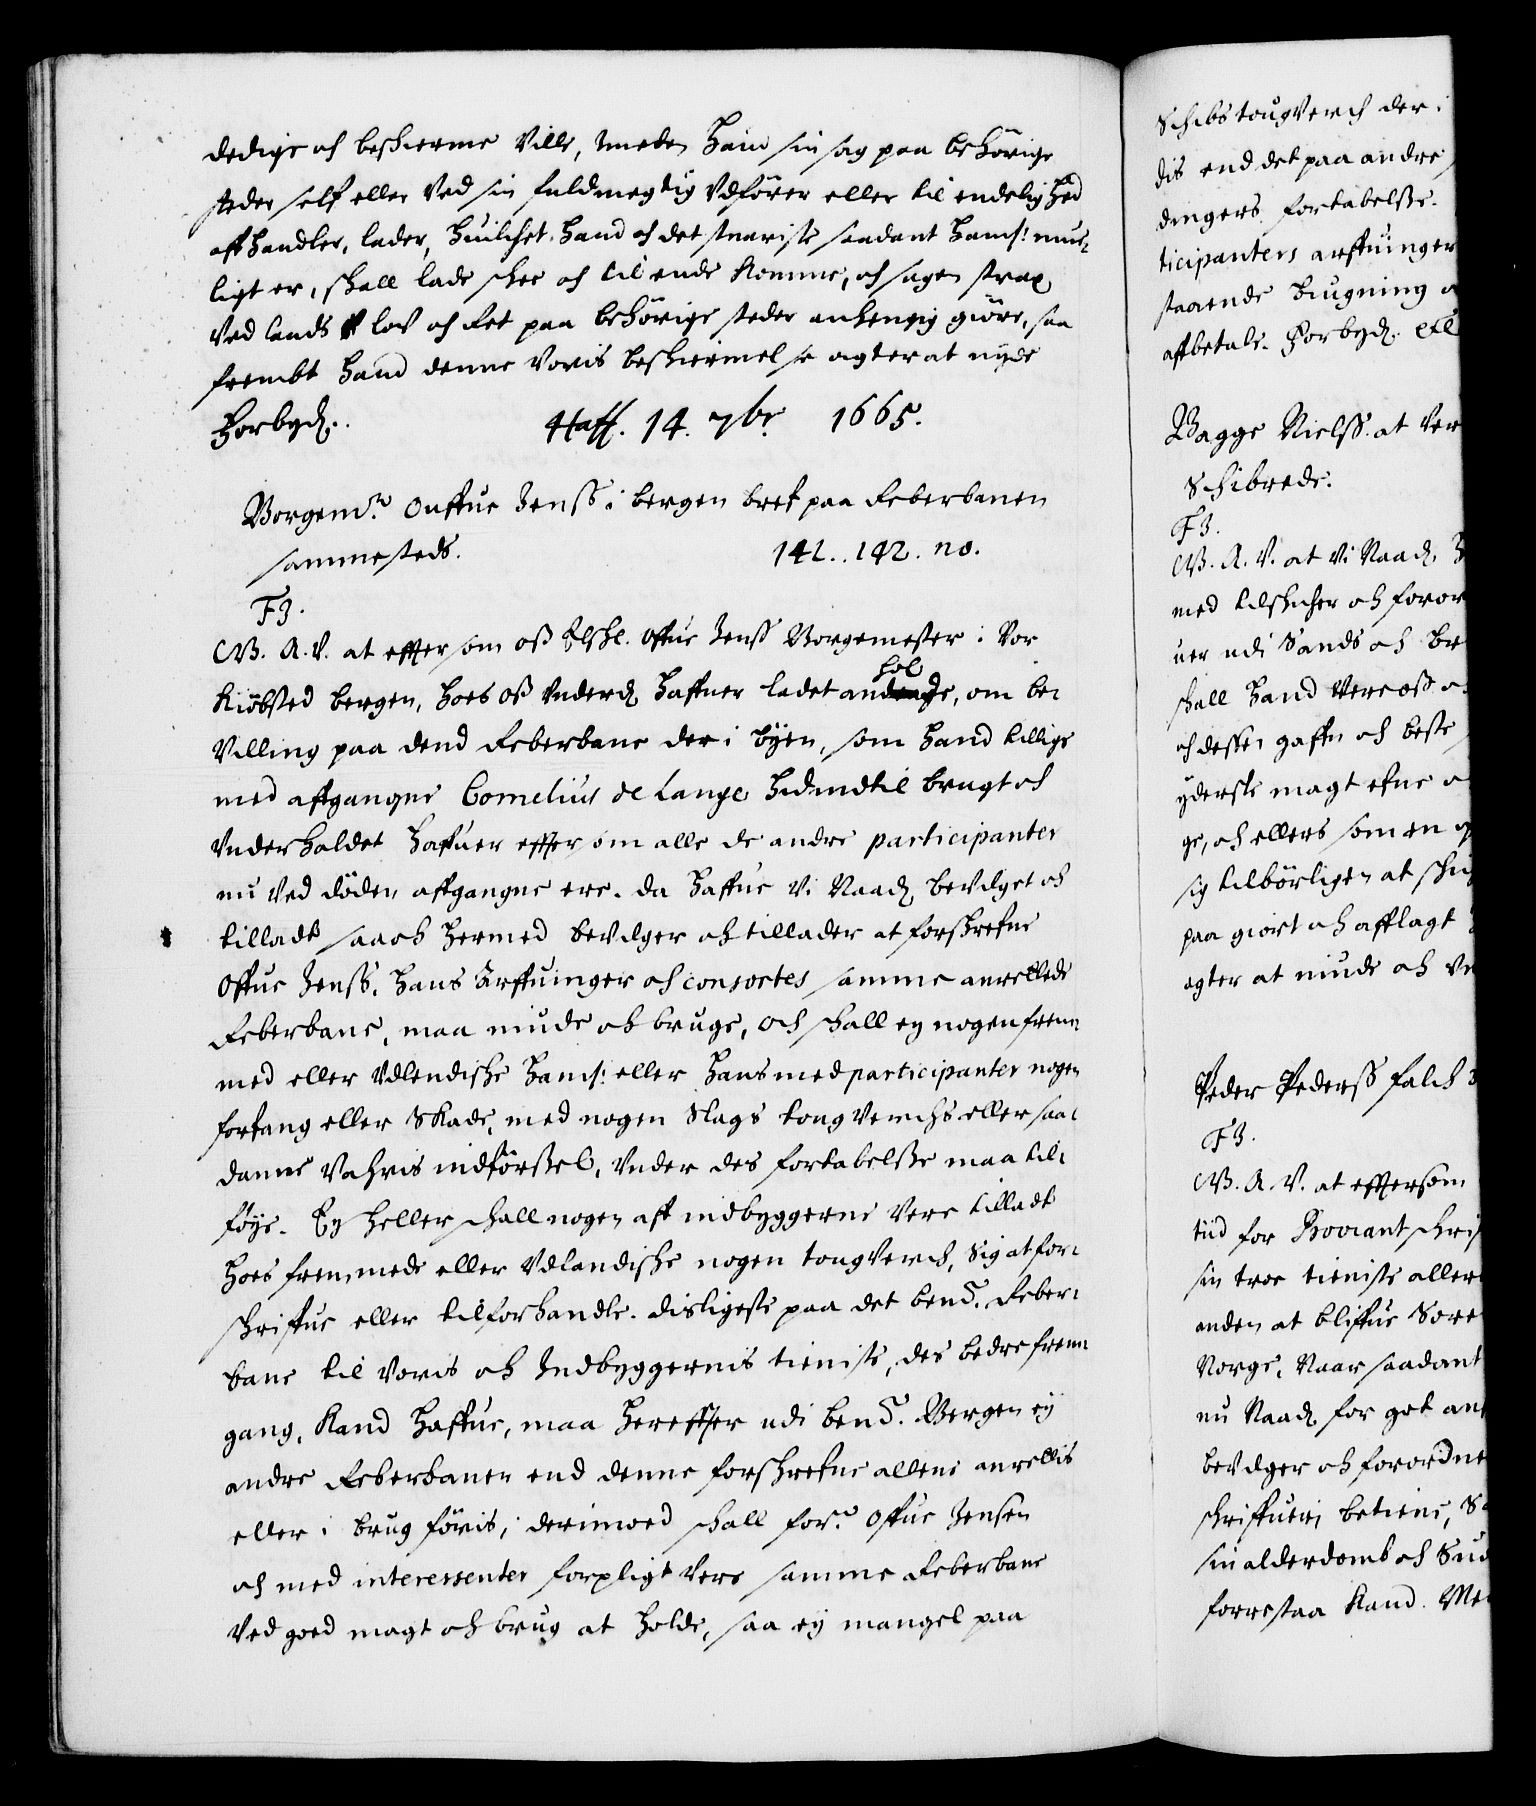 dedige och beskierme Ville, imeden Hand sin sag paa behörige
steder self eller Ved sin fuldmegtig Vdförer eller til endelighed
aff handler, lader, huilchet hand och det snariste saadant Hams: mue-
ligt er, skall lade skee och til ende Komme, och sagen strax
Ved lands lov och Ret paa behörige steder anhengig giöre, saa
frembt Hand denne Voris beskiermelse agter at nyde
Forbydh. Haff. 14. 7br. 1665.
Borgemr. Ouffue Jenss. i bergen bref paa Reberbanen
sammesteds. 141.. 142. no.
F3.
C V B. A. V. at effter som oss Elskl. Offue Jenss Borgemester i Vor
Kiöbsted bergen, hoes oss Vnderd. Haffuer ladet anhol de, om be-
Villing paa dend Reberbane der i byen, som Hand tillige
med affgangne Cornelius de Lange hidindtil brugt och
Vnderholdet Haffuer efftersom alle de andre participanter
nu Ved döden affgangne ere. da Haffue Vi Naad. bevilget och
tilladt saaoch Hermed bevilger och tillader at forskrefne
Offue Jenss. Hans Arffuinger och consortes samme anrettede
Reberbane, maa niude och bruge, och skall ey nogen frem-
med eller Vdlendiske Ham: eller Hans medparticipanter nogen
fortang eller Skade, med nogen Slags tougVerchs eller saa-
danne Vahris indförssel, Vnder des fortabelsse maa til-
föye. Ey heller skall nogen aff indbyggerne Vere tilladt
hoes fremmede eller Vdlandiske nogen tougVerch, Sig at for-
skriffue eller tilforhandle. disligeste paa det bend. Reber-
bane til Voris och Indbyggernis tieniste, des bedre frem-
gang, Kand Haffue, maa Hereffter udi bend. Bergen ey
andre Reberbaner end denne forskrefne allene anrettis
eller i brug föris, derimoed skall for.e Offue Jensen
och med interessenter forpligt Vere samme Reberbane
Ved goed magt och brug at holde, saa ey mangel paa
Schibs tougVerch der i
dis end det paa andre
dingers fortabelsse.
ticipanters arffuinger
staaende bugning
affbetale. Forbydh.
Bagge Nielss. at Ver
Schibrede.
F3.
C V B. A. V. at Vi Naad.
med tilskicker och foror
uer udi Sands och
skall Hand Vere oss
och dessen gaffn och beste
yderste magt efne
ge, och ellers som en
sig tilbörligen at
paa giort och afflagt
agter at niude och
Peder Pederss falch
F3.
C V B. A. V. at eftersom
tiid for Proviantskrif
sin troe tieniste aller
anden at bliffue
Norge, Naar saadant
nu Naad. for got
bevilger och forordne
skriffueri betiene,
sin alderdomb och
forrestaa Kand.